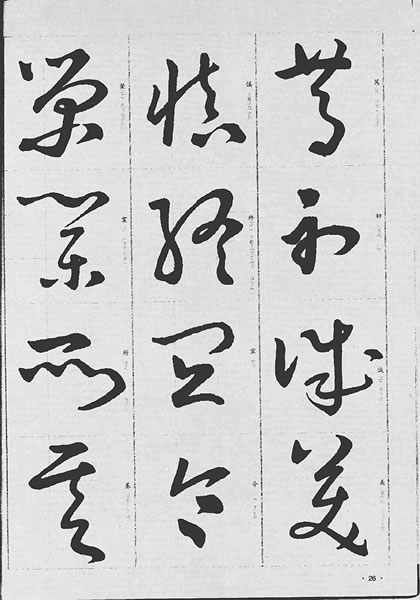 篤初誠美
慎終宜令
榮業所基
· 26 ·